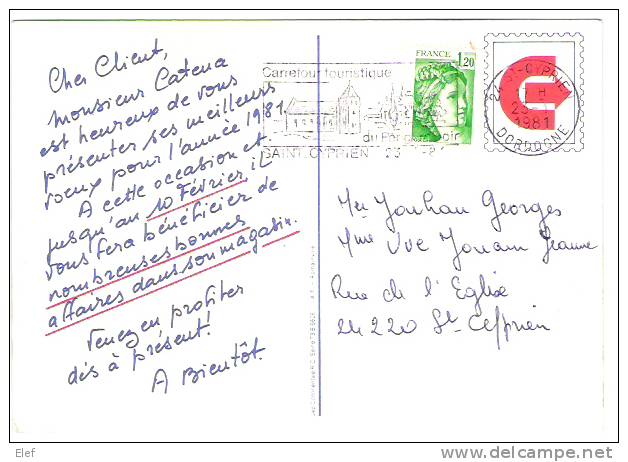 Cher Client,
Monsieur Catena
est heureux de vous
présenter ses meilleurs
voeux pour l'année 1981.
A cette occasion et
jusqu'au 10 Février, il
vous fera bénéficier de
nombreuses bonnes
affaires dans son magasin.
Venez en profiter
dès à présent!
A Bientôt.
Carrefour touristique
du Périgord Noir
SAINT CYPRIEN
FRANCE
1,20
24 ST-CYPRIEN
1981
DORDOGNE
Georges
Mme Vve Jouan Jeanne
Rue de l'Eglise
24220 St Cyprien
Elef
delcampe.net